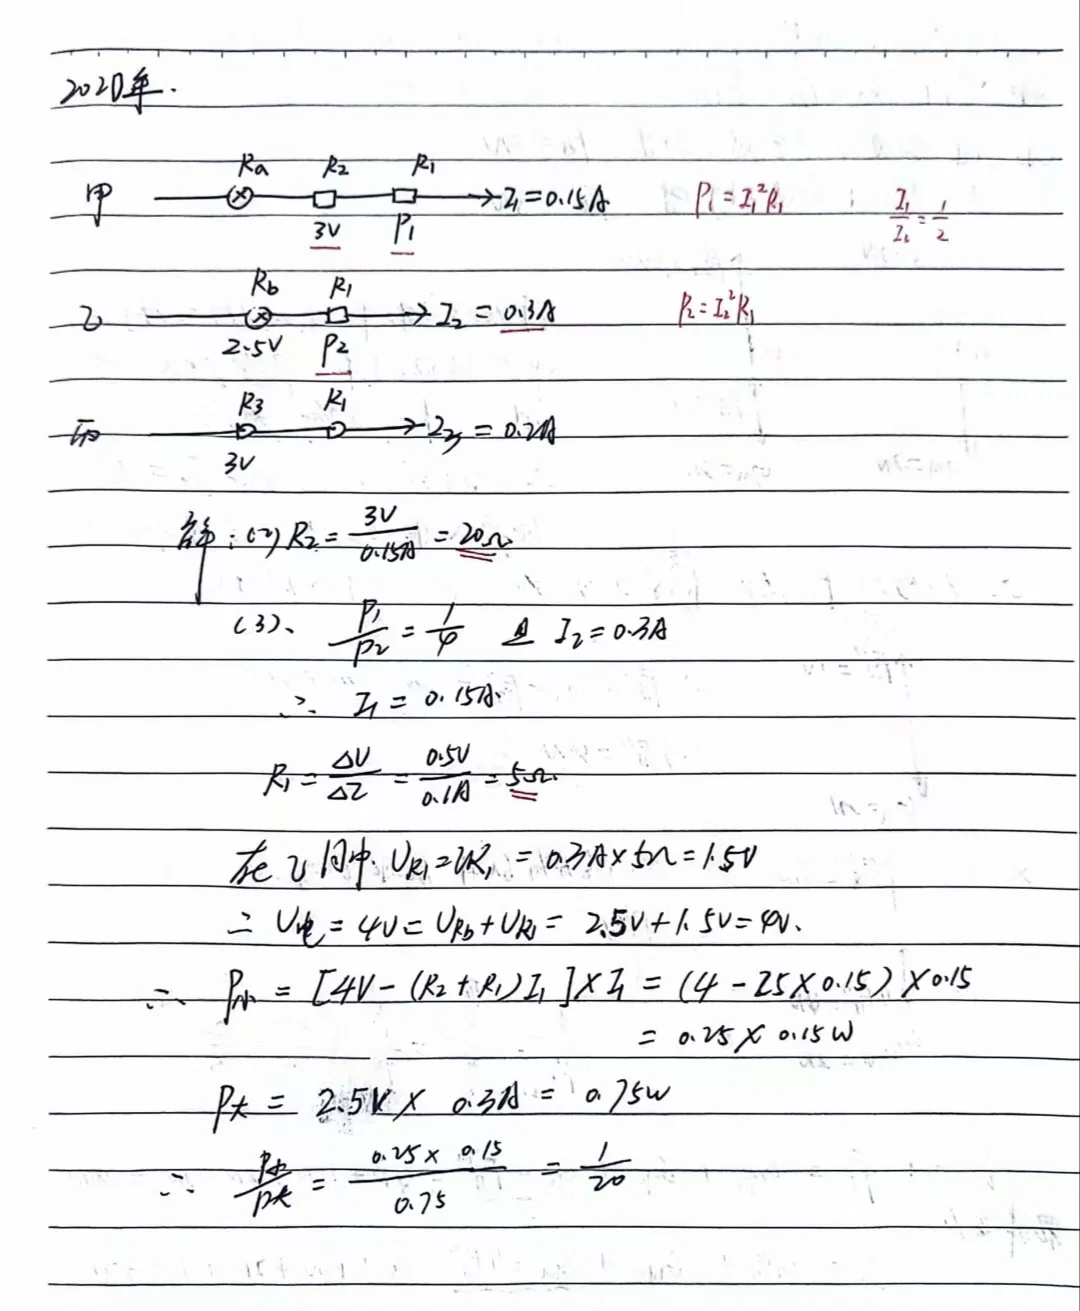 2020年.
Ra R2 R1
甲 I1=0.15A P1=I1²R1 I1/I2=1/2
3V P1
Rb R1
乙 I2=0.3A P2=I2²R1
2.5V P2
R3 R1
丙 I3=0.2A
3V
解:(2) R2=3V/0.15A=20Ω
(3)、 P1/P2=1/4 且 I2=0.3A
∴ I1=0.15A.
R1=ΔU/ΔI=0.5V/0.1A=5Ω.
在乙图中.UR1=IR1=0.3A×5Ω=1.5V
∴ U电=4V=URb+UR1=2.5V+1.5V=4V.
∴ P小=[4V-(R2+R1)I1]×I1=(4-25×0.15)×0.15
=0.25×0.15W
P大=2.5V×0.3A=0.75W
∴ P小/P大=0.25×0.15/0.75=1/20